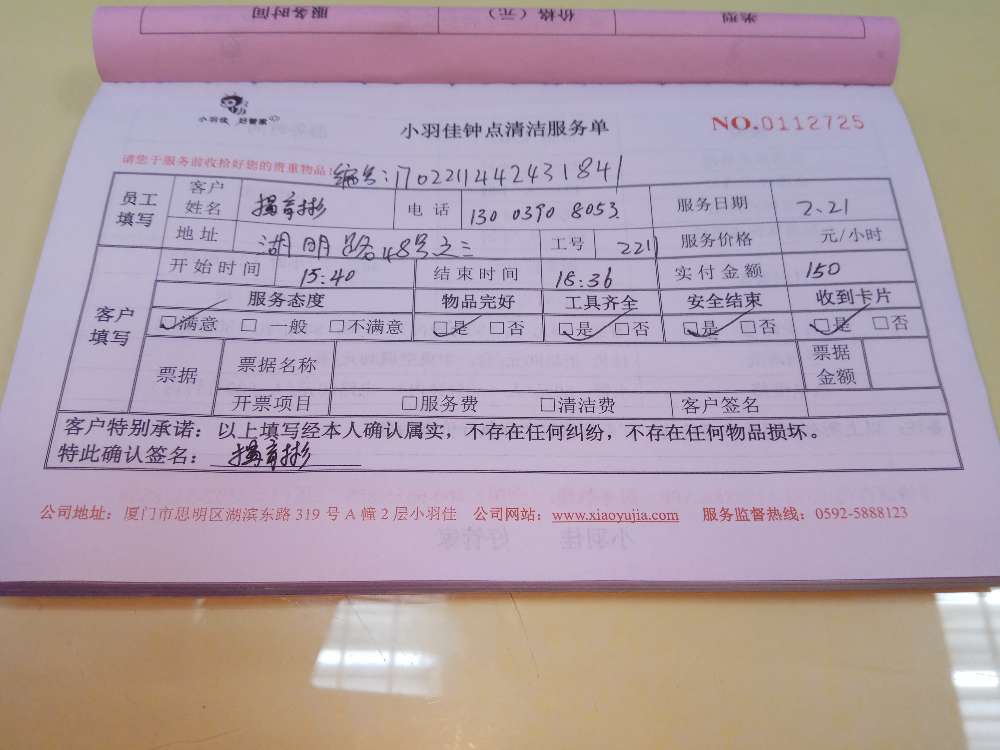 服务时间 价格（元） 类型
小羽佳 好管家
小羽佳钟点清洁服务单
NO.0112725
请您于服务前收拾好您的贵重物品！
编号:170221142431841
员工填写 客户姓名 揭育彬 电话 130 0390 8053 服务日期 2.21
地址 湖明路48号之三 工号 2211 服务价格 元/小时
客户填写 开始时间 15:40 结束时间 18:36 实付金额 150
服务态度 物品完好 工具齐全 安全结束 收到卡片
☑满意 □一般 □不满意 ☑是 □否 ☑是 □否 ☑是 □否 ☑是 □否
票据 票据名称 票据金额
开票项目 □服务费 □清洁费 客户签名
客户特别承诺：以上填写经本人确认属实，不存在任何纠纷，不存在任何物品损坏。
特此确认签名：揭育彬
公司地址：厦门市思明区湖滨东路 319 号 A 幢 2 层小羽佳 公司网站：www.xiaoyujia.com 服务监督热线：0592-5888123
小羽佳 好管家